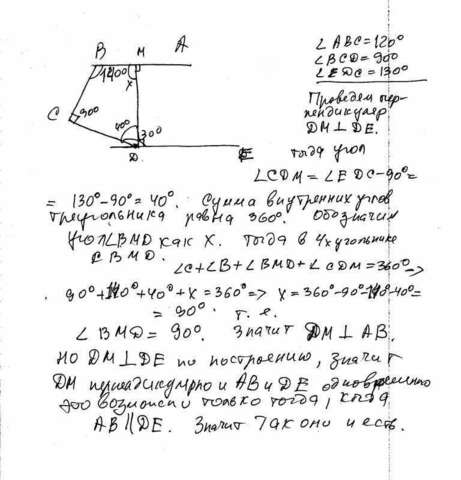 B M A
140°
x
C 90°
40° 130°
D E
∠ABC = 120°
∠BCD = 90°
∠EDC = 130°
Проведем пер-
пендикуляр
DM ⊥ DE.
тогда угол
∠CDM = ∠EDC - 90° =
= 130° - 90° = 40°. Сумма внутренних углов
треугольника равна 360°. Обозначим
угол ∠BMD как x. Тогда в 4х угольнике
CBMD.
∠C + ∠B + ∠BMD + ∠CDM = 360° =>
90° + 140° + 40° + x = 360° => x = 360° - 90° - 140° - 40° =
= 90°. т.е.
∠BMD = 90°. Значит DM ⊥ AB.
но DM ⊥ DE по построению, значит
DM перпендикулярно и AB и DE одновременно
это возможно только тогда, когда
AB || DE. Значит так оно и есть.